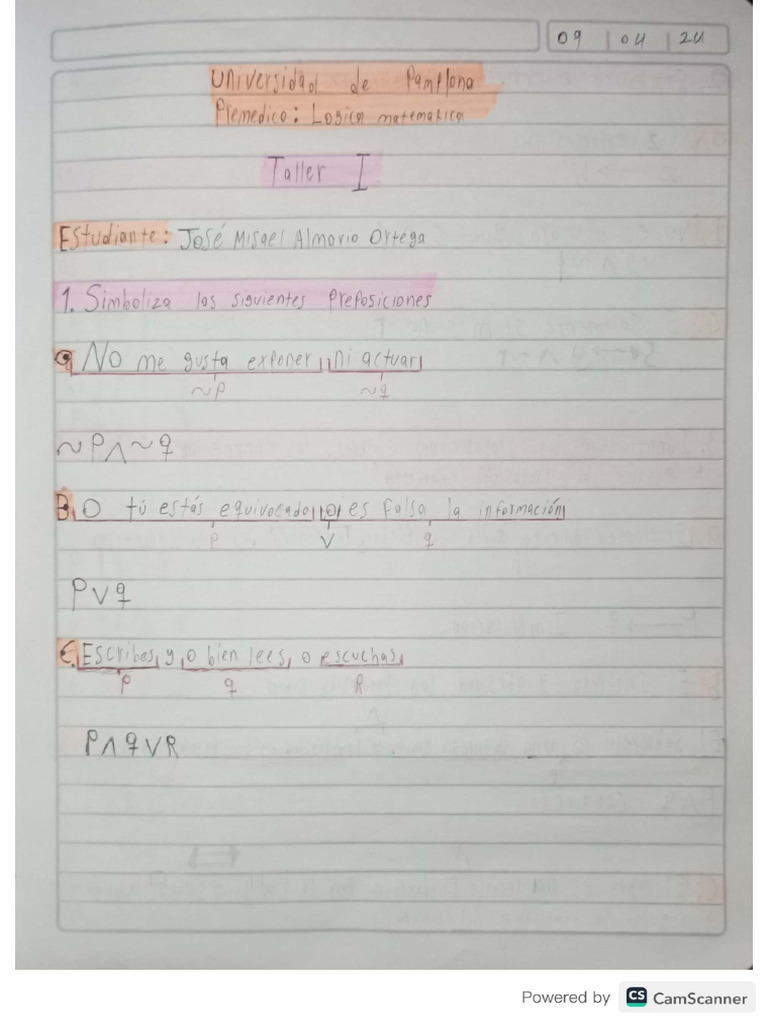 09 | 04 | 24
Universidad de Pamplona
Premedico: Logica matematica
Taller I
Estudiante: José Misael Almario Ortega
1. Simboliza las siguientes preposiciones
a No me gusta exponer ni actuar
~p ~q
~P∧~q
B. O tú estás equivocado o es falsa la información
p v q
P∨q
C. Escribes y o bien lees, o escuchas
p q R
P∧q∨R
Powered by CS CamScanner